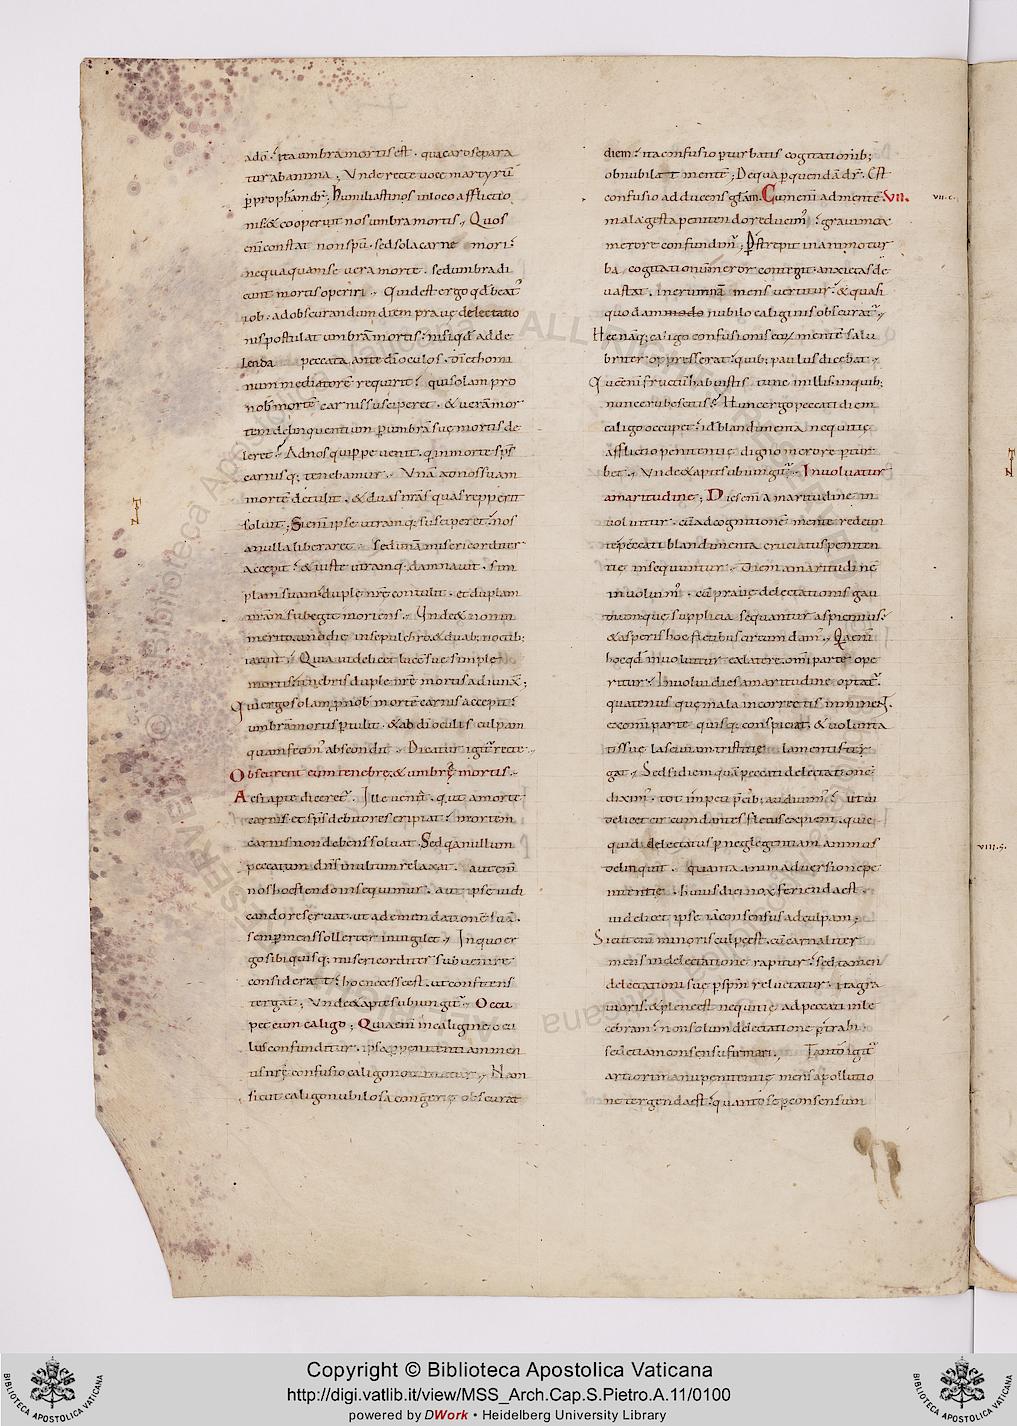 ado; ita umbra mortis est. qua caro separa
tur ab anima; Unde recte voce martyrũ
ꝑ prophã dr̃; Humiliasti nos in loco afflictio
nis. & cooperuit nos umbra mortis; Quos
eñi constat non spũ. sed sola carne mori;
nequaquam se vera morte. sed umbra di
cunt mortis operiri; Quid est ergo qđ beat᷒
iob. ad obscurandum diem pravę delectatio
nis postulat umbrã mortis; nisi qđ ad de
lenda peccata ante dĩ oculos. dĩ et homi
num mediatorẽ requirit; qui solam pro
nob̃ mortẽ carnis susciperet. & verã mor
tem delinquentium ꝑ umbrã suę mortis de
leret; Ad nos quippe venit. q̃ in morte sp̃s
carnisq; tenebamur; Unã ad nos suam
mortẽ detulit. & duas nr̃as quas repperit
solvit; Si eñi ipse utramq; susciperet. nos
a nulla liberaret; Sed unã misericorditer
accepit. & iuste utramq. damnavit. sim
plam suam duplę nr̃ę contulit. et duplam
nr̃am subegit moriens; Unde & non in
merito uno die in sepulchro & duab; noctib;
iacuit; Quia videlicet lucẽ suę simplę
mortis tenebris duplę nr̃ę mortis adiunx̃;
Qui ergo solam ꝑ nob̃ mortẽ carnis accepit.
umbrã mortis ꝑtulit. & ab dĩ oculis culpam
quam fecim᷒ abscondit; Dicatur igit᷑ recte
Obscurent eum tenebrę. & umbrę mortis.
Ac si apte diceret᷑. Ille veniat. q̃ ut a morte
carnis et sp̃s debitores eripiat. mortem
carnis non debens solvat. Sed q̃a nullum
peccatum dñs inultum relaxat. aut eñi
nos hoc flendo insequimur. aut ipse iudi
cando reservat. ut ad emendationẽ suã.
semp̱ mens sollerter invigilet; In quo er
go sibi quisq; misericorditer subvenire
considerat. hoc necesse est. ut confitens
tergat; Unde & apte subiungit᷑; Occu
pet eum caligo; Quia eñi in caligine ocu
lus confunditur. ipsa ꝑ penitentiam men
tis nr̃ę confusio caligo nominatur; Nam
sicut caligo nubilosa congerie obscurat
diem. ita confusio ꝑturbatis cogitationib;
obnubilat mentẽ; De qua ꝑ quendã dr̃. Est
confusio adducens glam̃. Cum eñi ad mentẽ VII.
mala gesta penitendo reducim᷒. gravi mox
merore confundim᷒; Perstrepit in animo tur
ba cogitationũ. meror conterit. anxietas de
vastat. in erumnã mens vertitur. & quasi
quodam modo nubilo caliginis obscurat᷑;
Hęc naq; caligo confusionis eoꝝ mentẽ salu
briter oppresserat. quib; paulus dicebat;
Quẽ eñi fructũ habuistis tunc in illis. in quib;
nunc erubescitis? Hunc ergo peccati diem
caligo occupet. id blandimenta nequitię
afflictio penitentię digno merore ꝑtur
bet; Unde & apte subiungit᷑; Involvatur
amaritudine; Dies eñi amaritudine in
volvitur. cũ ad cognitionẽ mente redeun
te. peccati blandimenta cruciatus peniten
tię insequuntur; Diem amaritudine
involvim᷒. cũ pravę delectationis gau
dium quę supplicia sequantur aspicimus.
& asperis hoc fletibus circumdam᷒; Q̃a eñi
hoc qđ involvitur ex latere omĩ parte ope
ritur. Involvi dies amaritudine optat᷑.
quatenus quę mala incorrectis immineat.
ex omni parte quisq; conspiciat. & volunta
tis suę lasciviam tristitię lamentis ter
gat; Sed si diem quã peccati delectatione
diximus. tot impeti precib; audivim᷒. ut vi
delicet circumdantes fletus expient. quic
quid delectatus ꝑ neglegentiam animus
delinquit. quanta animadversione pe
nitentię. huius diei nox ferienda est.
videlicet ipse iã consensus ad culpam;
Sicut eñi minoris culpę est. cũ carnaliter
mens in delectatione rapitur. sed tamen
delectationi suę ꝑ sp̃m reluctatur. ita gra
vioris. & plenę est nequitię ad peccati inle
cebram non solum delectatione ꝑtrahi.
sed etiam consensu famulari; Tanto igit᷑
artiori manu penitentię mens a pollutio
ne tergenda est. quanto se ꝑ consensum
VII. c.
VIII. G.
Copyright © Biblioteca Apostolica Vaticana
http://digi.vatlib.it/view/MSS_Arch.Cap.S.Pietro.A.11/0100
powered by DWork • Heidelberg University Library